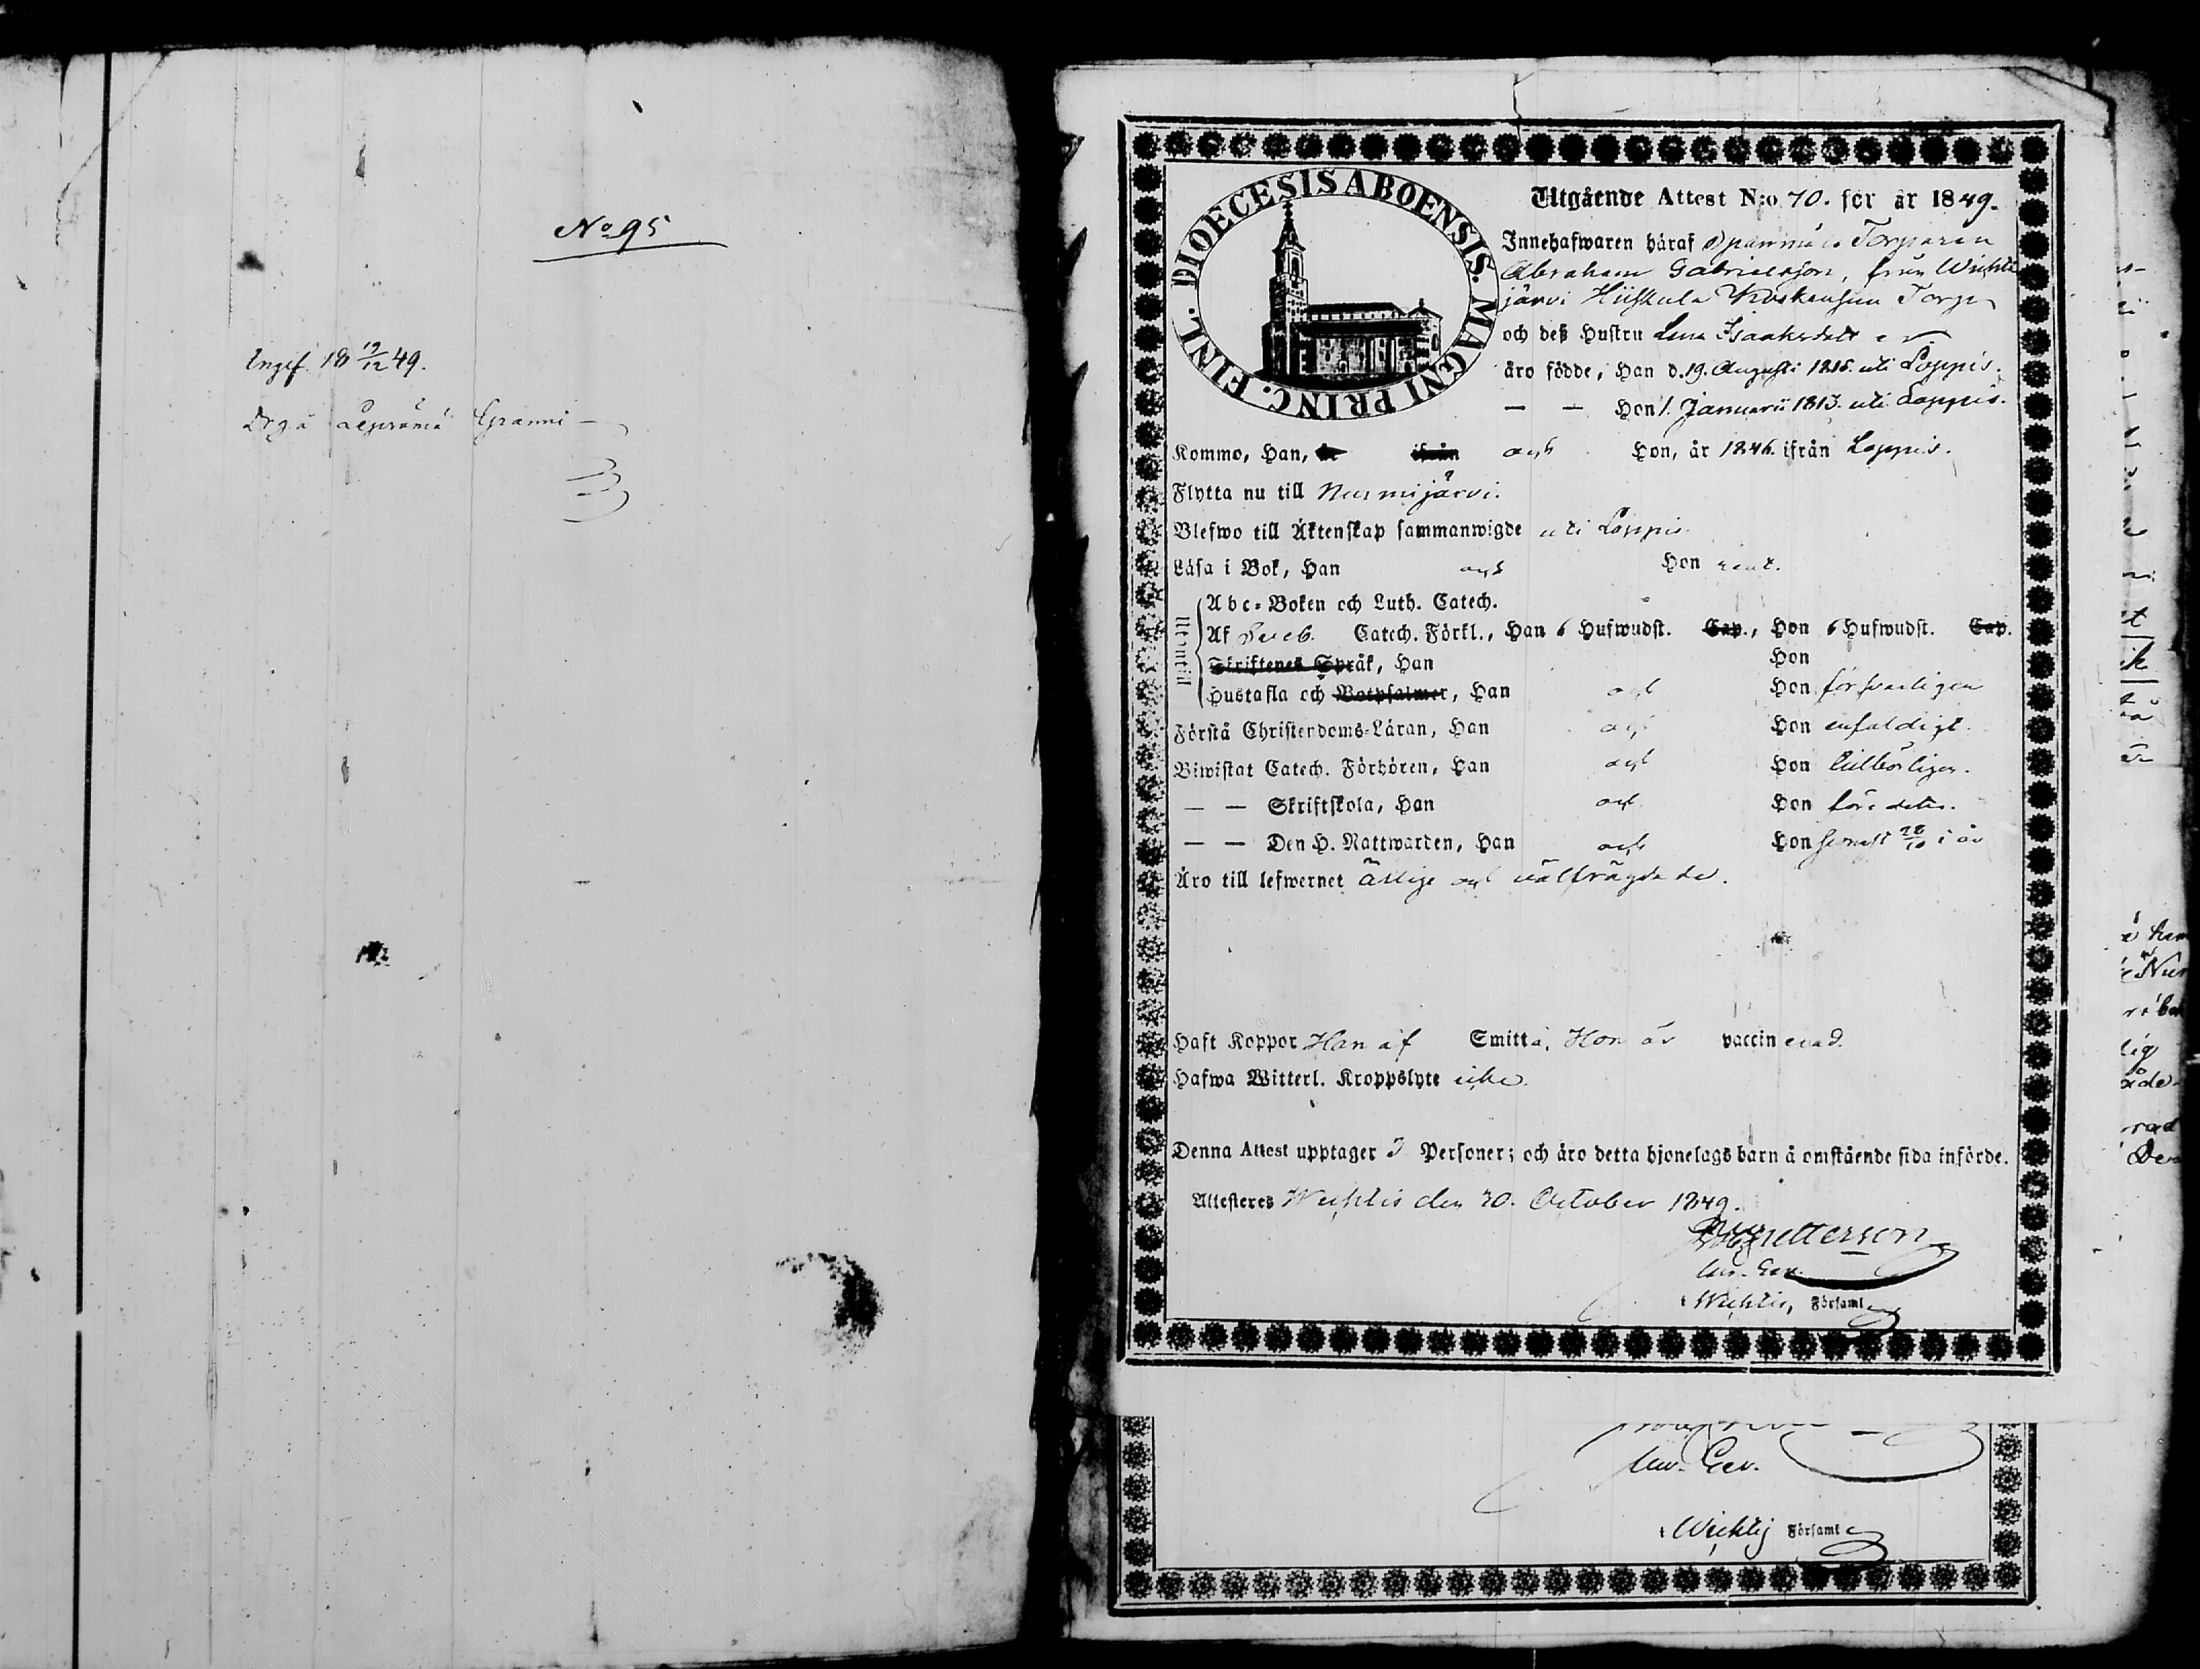 No 95
Ingif 18 19/12 49.
Leperömä Granni
DIOECESIS ABOENSIS. MAGNI PRINC. FINL.
Utgående Attest N:o 70. för år 1849.
Innehafwaren häraf Torparen
Abraham Gabrielsson, från Wichti
järvi Hiiskula Torp
och deß Hustru Lena Isaaksdotr
äro födde, Han d. 19. Augusti 1815. uti Loppis.
— — Hon 1. Januarii 1813. uti Loppis.
Kommo, Han, år ifrån och Hon, år 1846. ifrån Loppis.
Flytta nu till Nurmijärvi.
Blefwo till Äktenskap sammanwigde uti Loppis.
Läsa i Bok, Han och Hon rent.
Utantill
Abc-Boken och Luth. Catech.
Af Sveb. Catech. Förkl., Han 6 Hufwudst. Cap., Hon 6 Hufwudst. Cap.
Skriftenes Språk, Han Hon
Hustafla och Botpsalmer, Han och Hon försvarligen
Förstå Christendoms-Läran, Han och Hon enfaldigt.
Biwistat Catech. Förhören, Han och Hon tillbörligen.
— — Skriftskola, Han och Hon före detta.
— — Den H. Nattwarden, Han och Hon senast 28/10 i år
Äro till lefwernet ärlige och välfrägdade.
Haft Koppor Han af Smitta, Hon är vaccinerad.
Hafwa Witterl. Kroppslyte icke.
Denna Attest upptager Personer; och äro detta hjonelags barn å omstående sida införde.
Attesteres Wichtis den 30. October 1849.
i Wichtis Församl
i Wichtis Församl